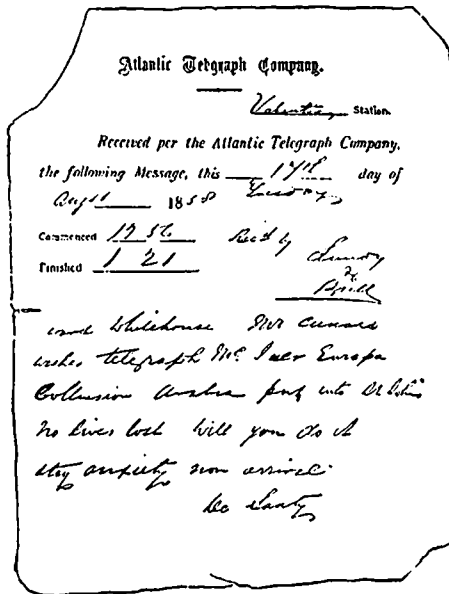 Atlantic Telegraph Company.
Valentia Station.
Received per the Atlantic Telegraph Company,
the following Message, this 17th day of
Augst 1858 Tuesday
Commenced 12 56 Recd by
Finished 1 21
Whitehouse Mr Cunard
wishes telegraph McIver Europa
Collision Arabia put into St Johns
No lives lost Will you do it
stay anxiety non arrival
De Sauty